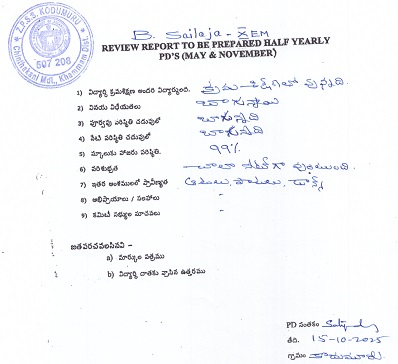 Z.P.S.S. KODUMURU
Chinthakani Mdl., Khammam Dist.
507 208
B. Sailaja - XEM
REVIEW REPORT TO BE PREPARED HALF YEARLY
PD'S (MAY & NOVEMBER)
1) విద్యార్థి క్రమశిక్షణ అందరి విద్యార్థులది. క్రమశిక్షణలో వున్నది.
2) వినయ విధేయతలు బాగున్నాయి
3) పూర్వపు పరిస్థితి చదువులో బాగున్నది
4) నేటి పరిస్థితి చదువులో బాగున్నది
5) స్కూలుకు హాజరు పరిస్థితి. 99%
6) పరిశుభ్రత చాలా నీట్‌గా వుంటుంది.
7) ఇతర అంశములలో ప్రావీణ్యత ఆటలు, పాటలు, డాన్స్
8) అభిప్రాయాలు / సలహాలు
9) కమిటీ సభ్యుల సూచనలు
జతపరచవలసినవి -
a) మార్కుల పత్రము
b) విద్యార్థి దాతకు వ్రాసిన ఉత్తరము
PD సంతకం
తేది. 15-10-2025
గ్రామం కొదుమూరు